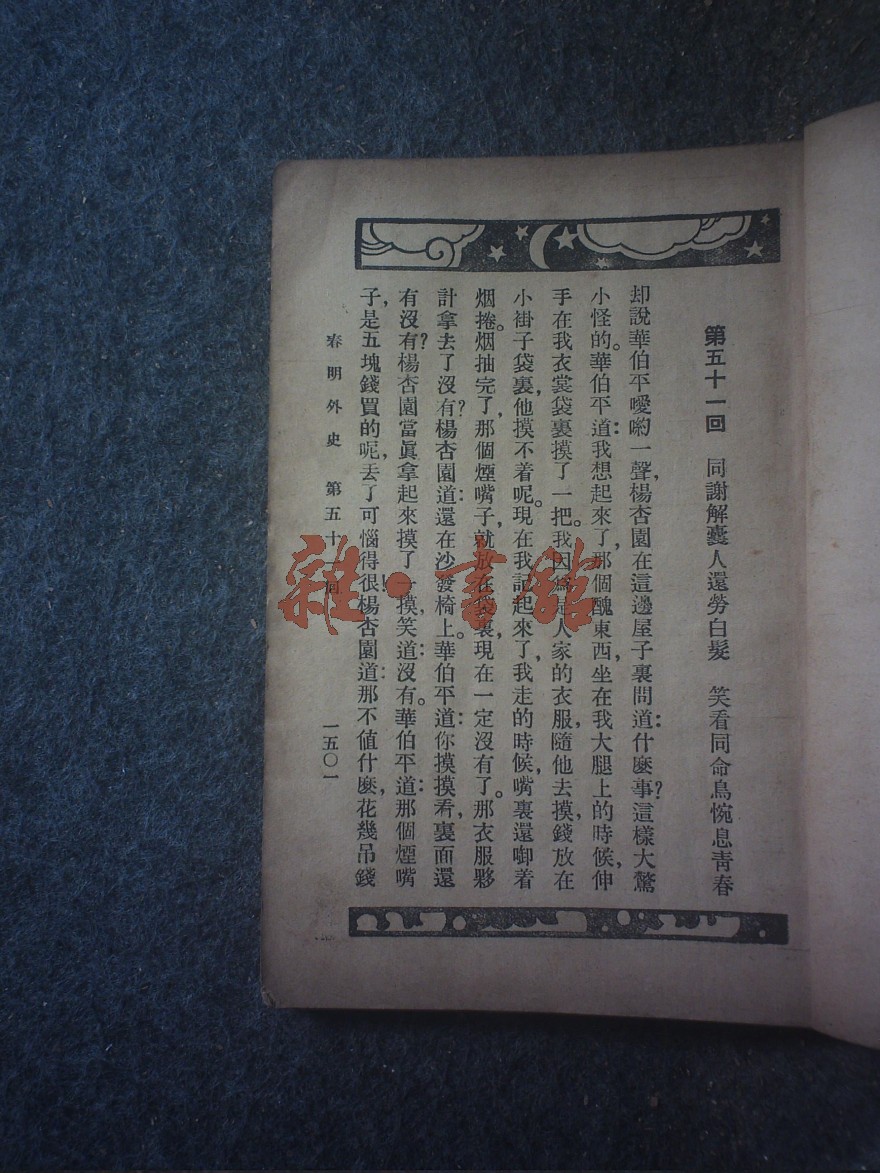 第五十一回　同謝解囊人還勞白髮　笑看同命鳥惋息青春
却說華伯平噯喲一聲，楊杏園在這邊屋子裏問道：什麽事？這樣大驚
小怪的。華伯平道：我想起來了，那個醜東西，坐在我大腿上的時候，伸
手在我衣裳袋裏摸了一把。我因爲是人家的衣服，隨他去摸，錢放在
小褂子袋裏，他摸不着呢。現在我記起來了，我走的時候，嘴裏還啣着
烟捲。烟抽完了，那個煙嘴子，就放在袋裏，現在一定沒有了。那衣服夥
計拿去了沒有？楊杏園道：還在沙發椅上。華伯平道：你摸摸看，裏面還
有沒有？楊杏園當眞拿起來摸了一摸，笑道：沒有。華伯平道：那個煙嘴
子，是五塊錢買的呢，丢了可惱得很！楊杏園道：那不值什麽，花幾吊錢
春明外史　第五十　回　一五〇一
雜·書館